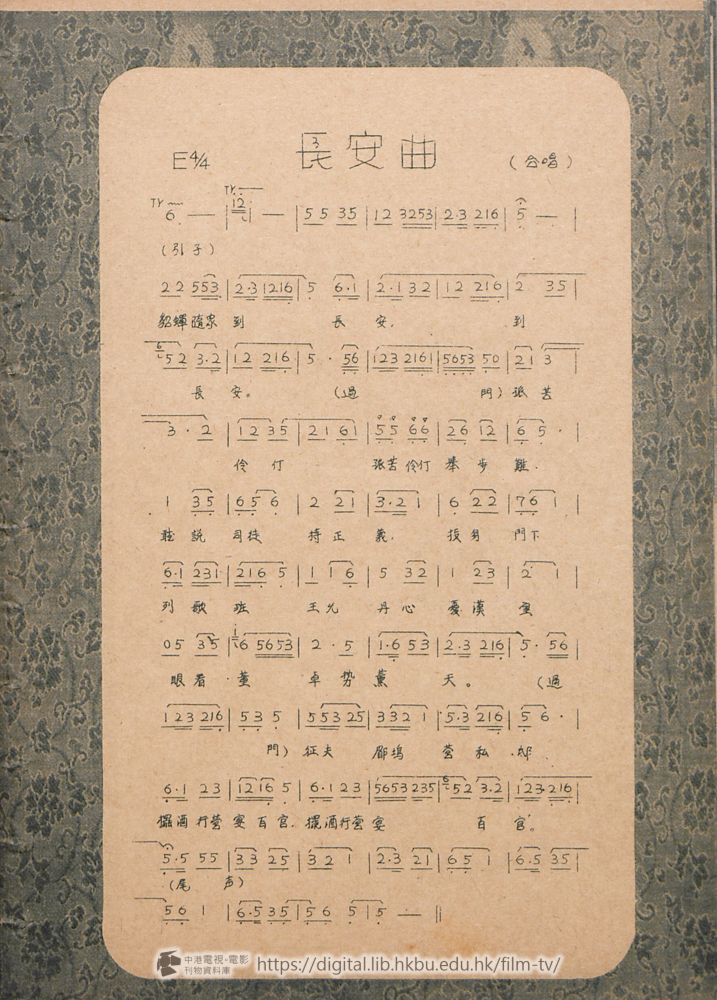 E4/4 長安曲 (合唱)
6. — | 12 | — | 5 5 35 | 12 3253 | 2·3 216 | 5 — |
(引子)
22 553 | 2·3 1216 | 5 6·1 | 2·1 32 | 12 216 | 2 35 |
貂蟬隨眾到 長安. 到
52 3·2 | 12 216 | 5 · 56 | 123 2161 | 5653 50 | 21 3 |
長安。 (過門) 孤苦
3 · 2 | 12 35 | 21 61 | 55 66 | 26 12 | 6 5 · |
伶仃 孤苦伶仃 舉步難.
1 35 | 65 6 | 2 21 | 3·2 1 | 6 22 | 76 1 |
聽說 司徒 持正義. 投身門下
6·1 231 | 216 5 | 1 16 | 5 32 | 1 23 | 2 1 |
列歌班 王允丹心憂漢室
05 35 | 6 5653 | 2 · 5 | 1·6 53 | 2·3 216 | 5 · 56 |
眼看 董卓勢薰天。 (過
123 216 | 53 5 | 553 25 | 332 1 | 5·3 216 | 5 6 · |
門) 征夫 郿塢營私邸.
6·1 23 | 12 16 5 | 6·1 23 | 5653 235 | 52 3·2 | 123·216 |
擺酒行營宴百官. 擺酒行營宴 百官。
5·5 55 | 33 25 | 32 1 | 2·3 21 | 65 1 | 6·5 35 |
(尾声)
56 1 | 6·5 35 | 56 5 | 5 — ||
中港電視·電影
刊物資料庫
https://digital.lib.hkbu.edu.hk/film-tv/